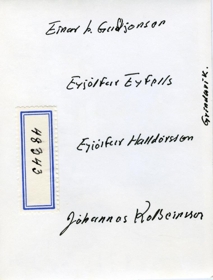 Einar G. Guðjónsson
Eyjólfur Eyfells
Eyjólfur Halldórsson
Jóhannes Kolbeinsson
Grindavík.
48343